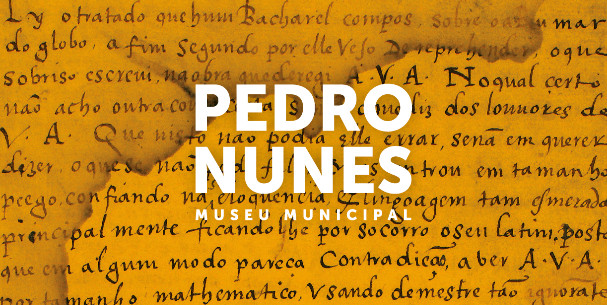 Ly o tratado que hum Bacharel compos, sobre o as umar
do globo, a fim segundo por elle vejo De reprehender, o que
sobriso escreui, na obra que deregi A·V·A· No qual certo
não acho outra diz dos louuores de
V. A. Que nisto não podia elle errar, senã em querer
dizer, o que se não trou em tamanho
peego, confiando na eloquencia, & lingoagem tam esmerada
principal mente ficandolhe por socorro o seu latim, posto
que em algum modo pareca Contradiçaõ, a ber A·V·A·
por tamanho mathematico, Usando de mestre tão ignorãte
PEDRO
NUNES
MUSEU MUNICIPAL